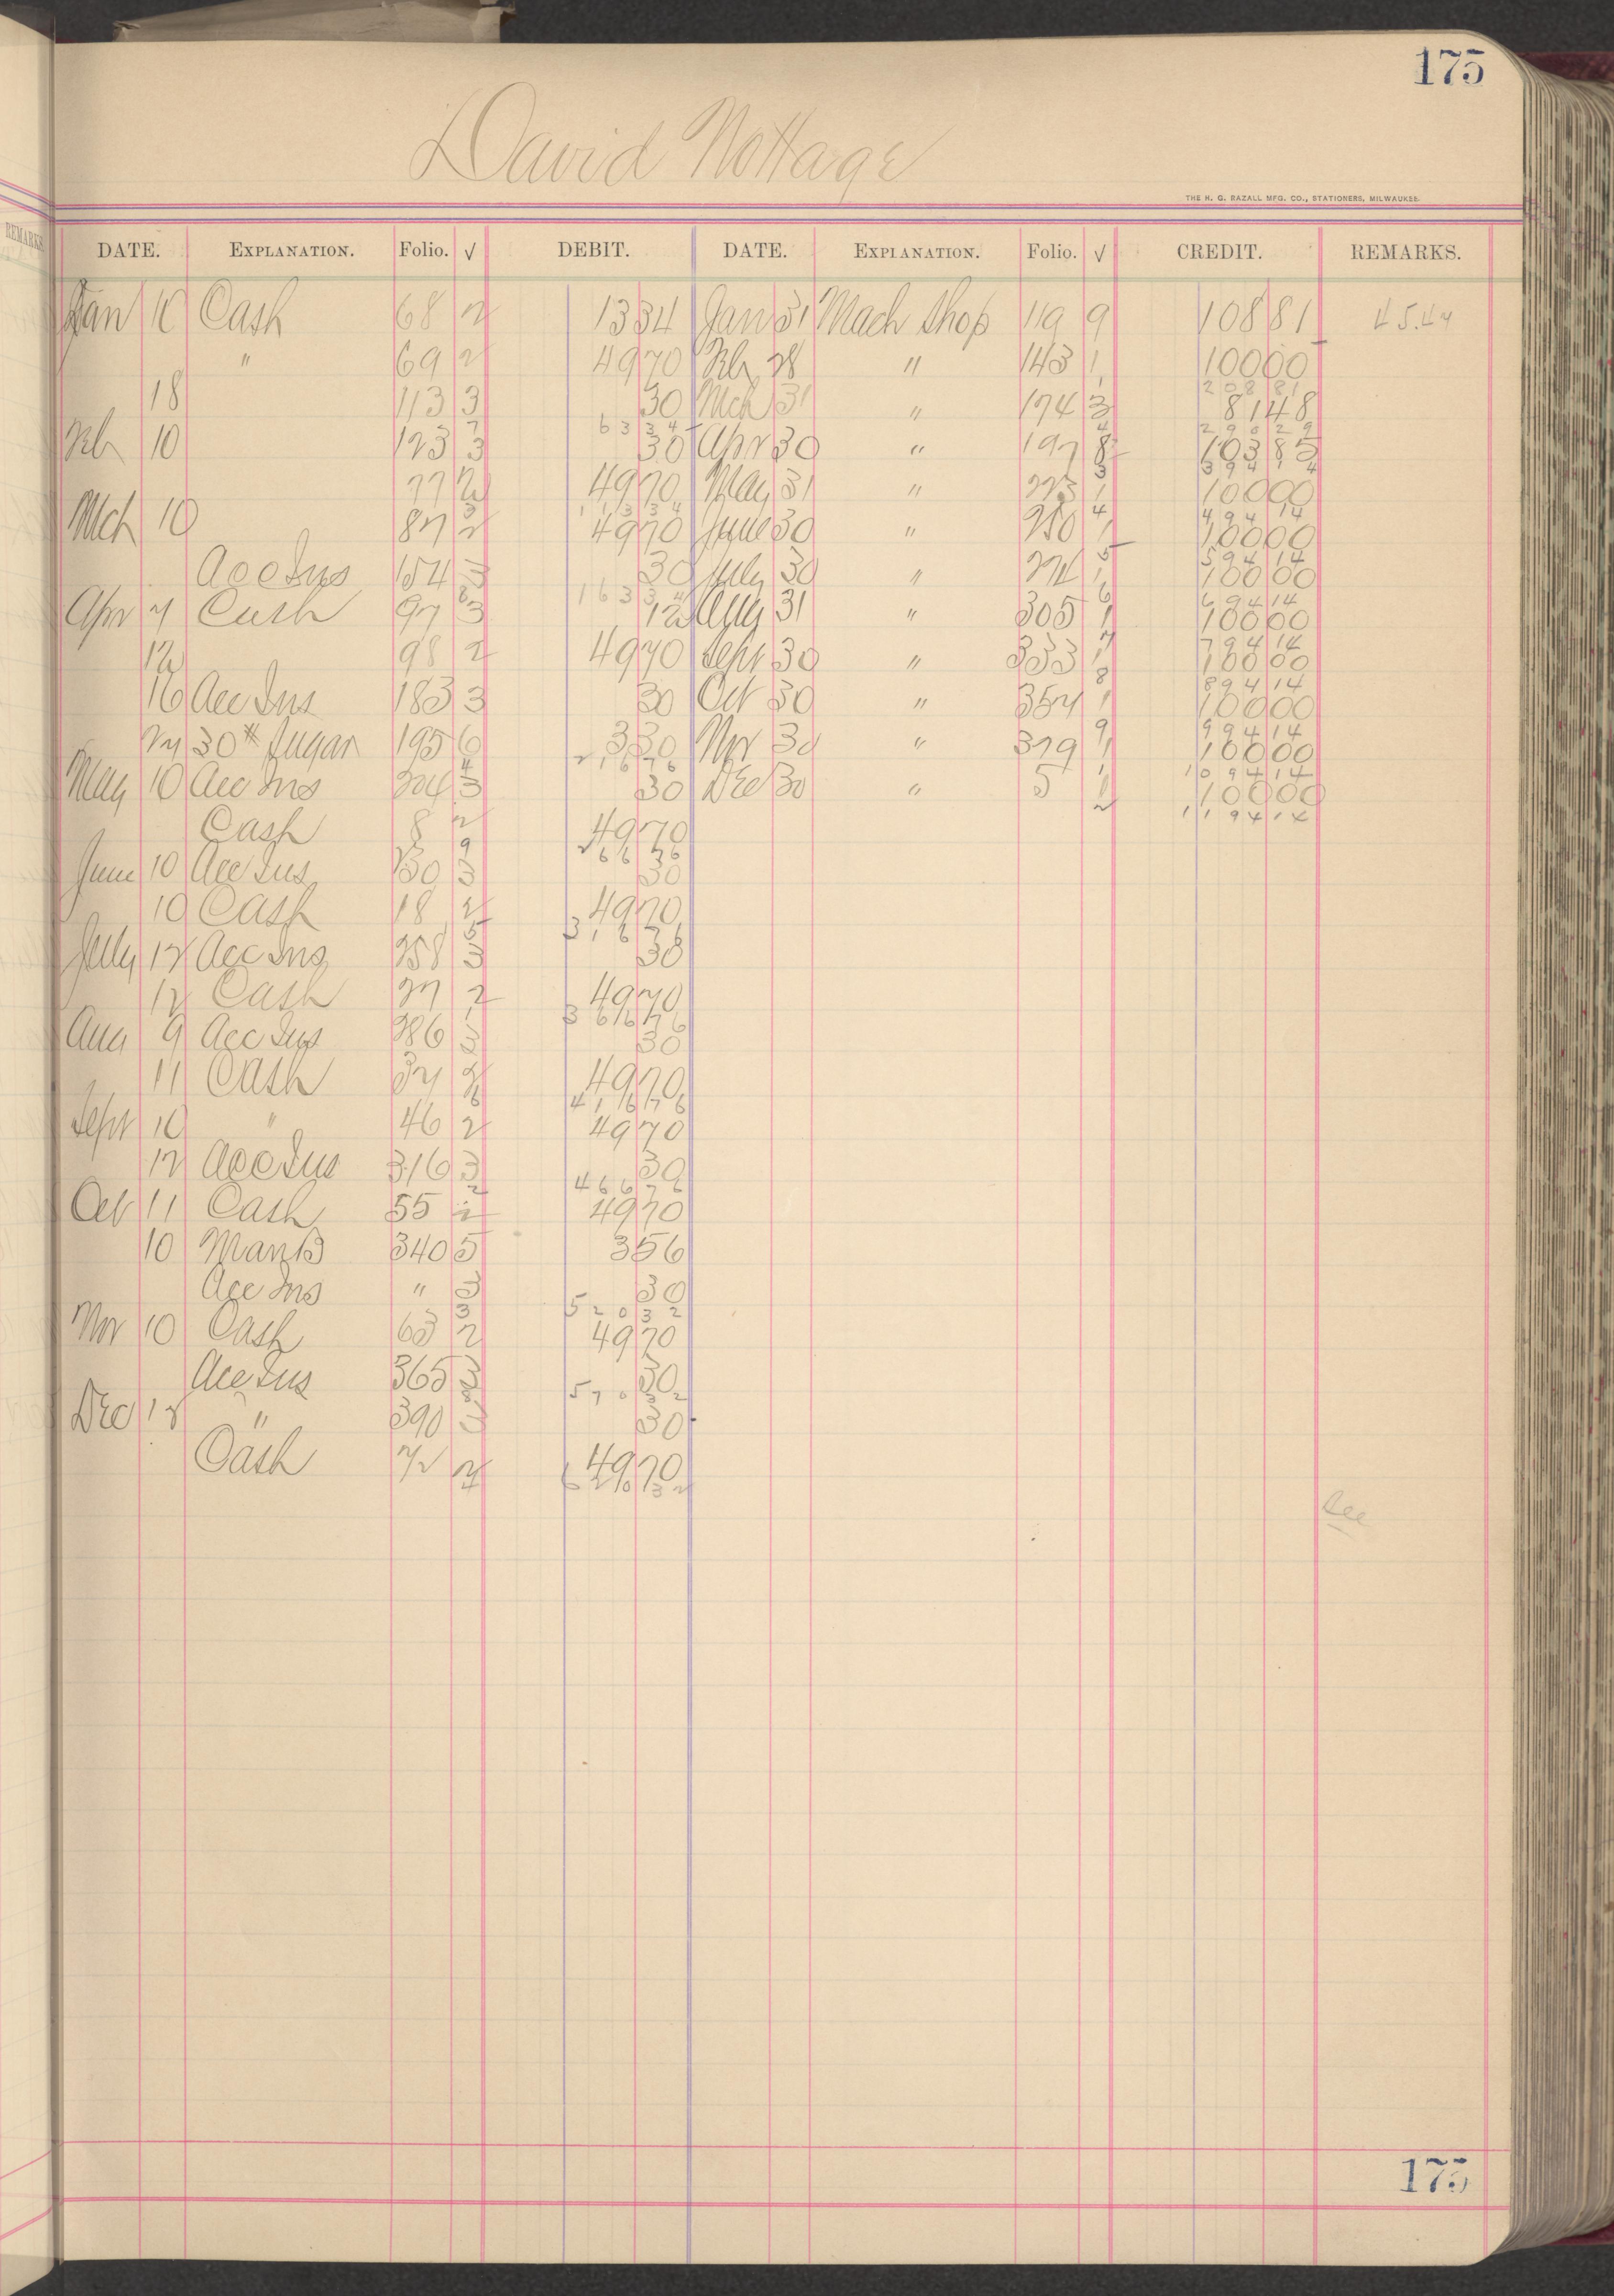 175
David Nottage
THE H. G. RAZALL MFG. CO., STATIONERS, MILWAUKEE.
REMARKS
DATE. EXPLANATION. Folio. √ DEBIT. DATE. EXPLANATION. Folio. √ CREDIT. REMARKS.
Jan 10 Cash 68 2 1334 Jan 31 Mach Shop 119 9 10881 45.44
" 69 2 4970 Feb 28 " 143 1 10000
20881
18 113 3 30 Mch 31 " 174 3 8148
6334 29029
Feb 10 123 3 30 Apr 30 " 197 8 10385
39414
77 2 4970 May 31 " 223 1 10000
11334 49414
Mch 10 87 2 4970 June 30 " 250 1 10000
59414
Acc Ins 154 3 30 July 30 " 1 10000
16334 69414
Apr 7 Cash 97 3 12 Aug 31 " 305 1 10000
79414
12 98 2 4970 Sept 30 " 333 1 10000
89414
16 Acc Ins 183 3 30 Oct 30 " 354 1 10000
99414
30# Sugar 195 6 330 Nov 30 " 379 1 10000
21676 109414
May 10 Acc Ins 204 3 30 Dec 30 " 5 1 10000
119414
Cash 8 2 4970
26676
June 10 Acc Ins 230 3 30
10 Cash 18 2 4970
31676
July 12 Acc Ins 258 3 30
12 Cash 27 2 4970
36676
Aug 9 Acc Ins 286 3 30
11 Cash 37 2 4970
41676
Sept 10 " 46 2 4970
12 Acc Ins 316 3 30
46676
Oct 11 Cash 55 2 4970
10 ManB 340 5 356
Acc Ins " 3 30
52032
Nov 10 Cash 63 2 4970
Acc Ins 365 3 30
57032
Dec 12 " 390 3 30
Cash 72 2 4970
62032
175